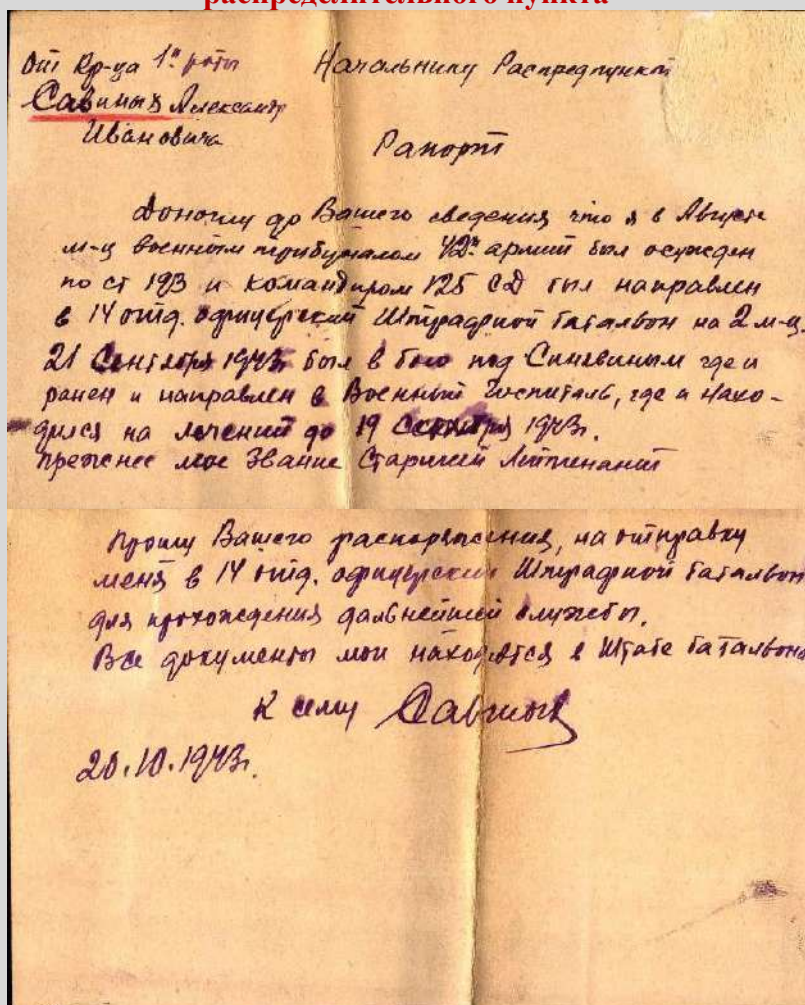 распределительного пункта
От кр-ца 1й роты
Начальнику Распредпункта
Савиных Александр
Ивановича
Рапорт
Доношу до Вашего сведения что я в Августе
м-ц военным трибуналом 42й армии был осужден
по ст 193 и командиром 125 СД был направлен
в 14 отд. офицерский Штрафной батальон на 2 м-ц.
21 Сентября 1943г был в бою под Синявиным где и
ранен и направлен в Военный госпиталь, где и нахо-
дился на лечений до 19 1943г.
прежнее мое Звание Старшей Лейтенант
Прошу Вашего распоряжения, на отправку
меня в 14 отд. офицерский Штрафной батальон
для прохождения дальнейшей службы.
Все документы мои находятся в Штабе батальона
К сему Савиных
20.10.1943г.